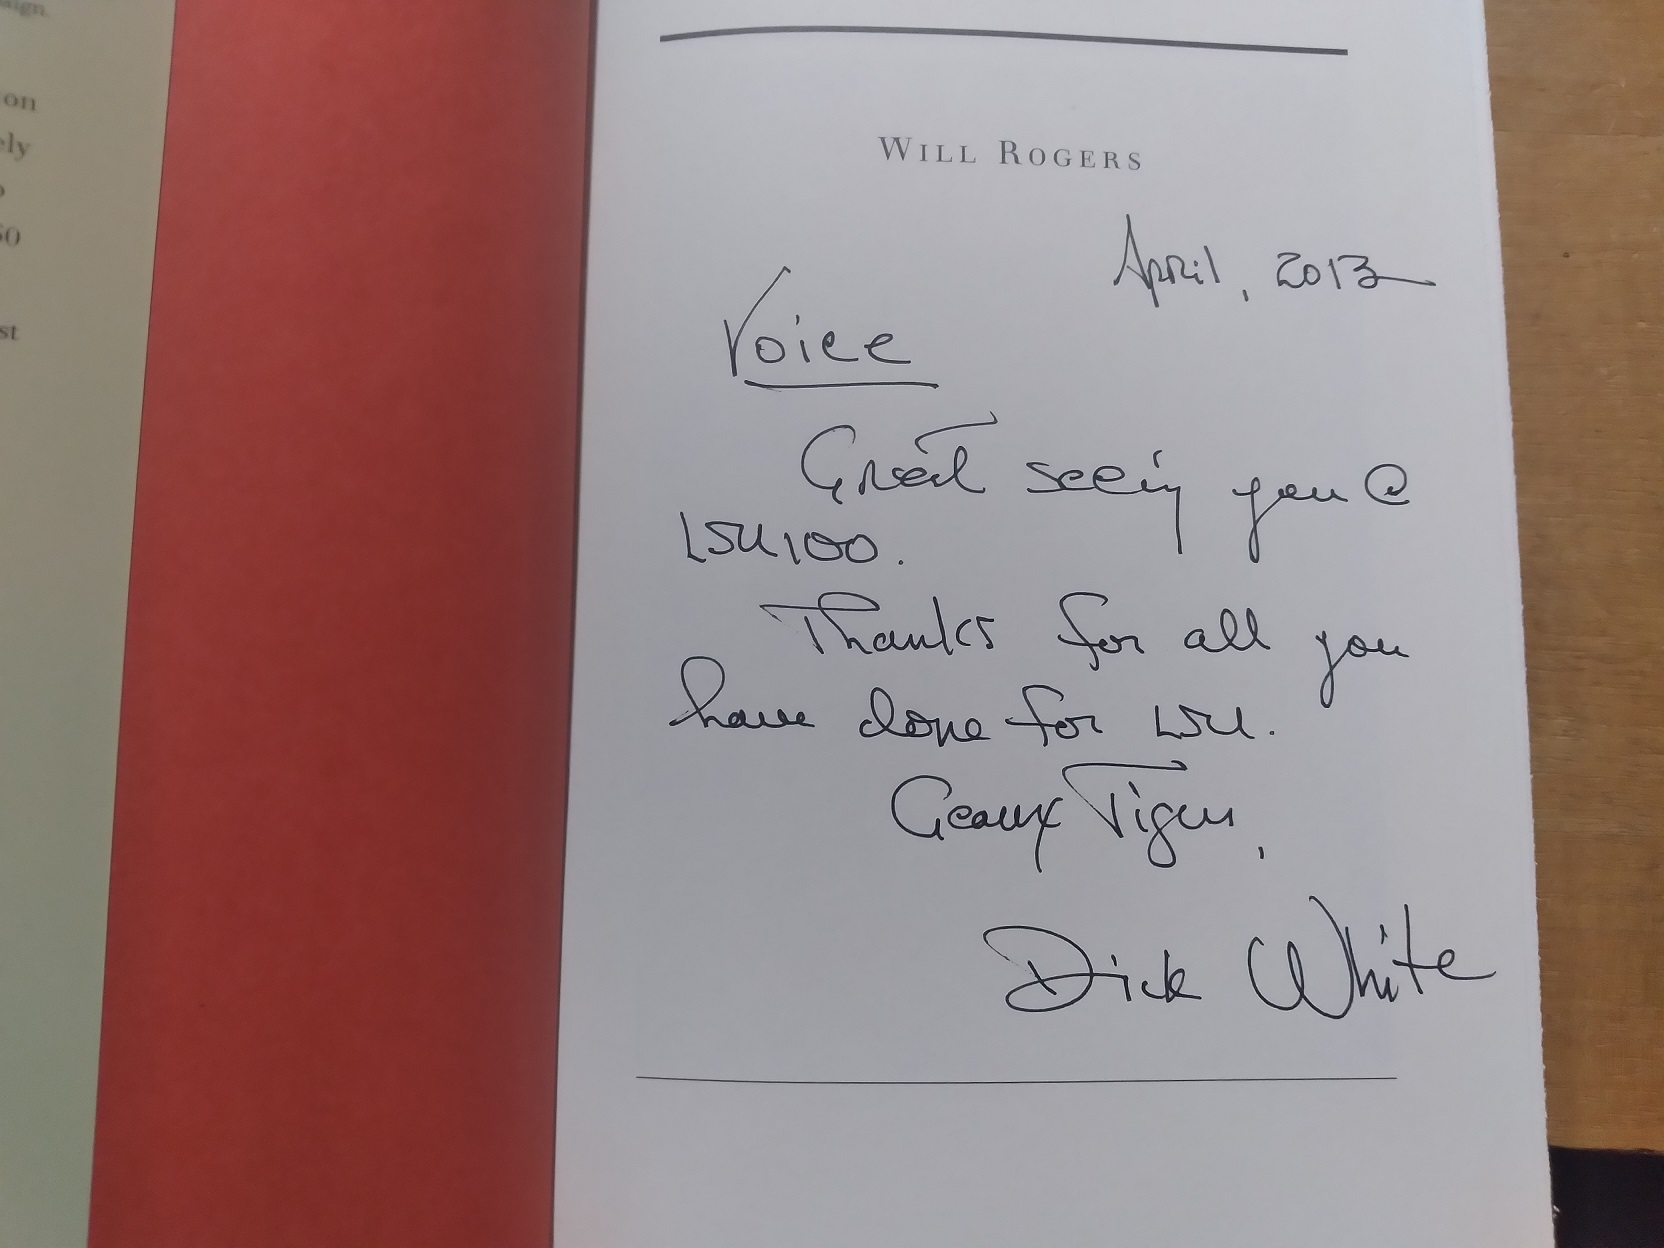 aign.
on
ely
50
st
WILL ROGERS
April, 2013
Voice
Great seeing you @
LSU100.
Thanks for all you
have done for LSU.
Geaux Tigers,
Dick White